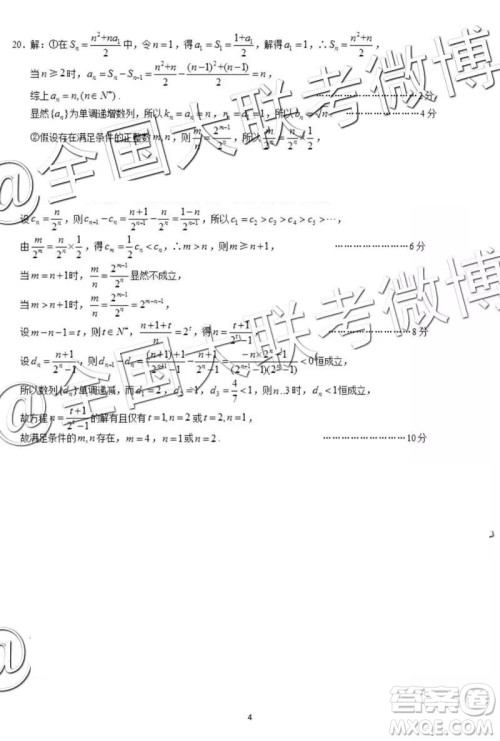 20．解：①在 $S_n=\frac{n^2+na_1}{2}$ 中，令 $n=1$，得 $a_1=S_1=\frac{1+a_1}{2}$，解得 $a_1=1$，∴ $S_n=\frac{n^2+n}{2}$，
当 $n\geq 2$ 时，$a_n=S_n-S_{n-1}=\frac{n^2+n}{2}-\frac{(n-1)^2+(n-1)}{2}=n$，
综上 $a_n=n,(n\in N^*)$． ………………2分
显然 $\{a_n\}$ 为单调递增数列，所以 $k_n=a_n=n$，$d_n=a_1=1$，所以 $b_n=\sqrt{n}$． ………………4分
②假设存在满足条件的正整数 $m,n$，则 $\frac{m}{n}=\frac{2^{m-1}}{2^n}$，所以 $\frac{m}{2^m}=\frac{n}{2^n}\times\frac{1}{2}$，
设 $c_n=\frac{n}{2^n}$，则 $c_{n+1}-c_n=\frac{n+1}{2^{n+1}}-\frac{n}{2^n}=\frac{1-n}{2^{n+1}}$，所以 $c_1=c_2>c_3>c_4>c_5>\cdots$，
由 $\frac{m}{2^m}=\frac{n}{2^n}\times\frac{1}{2}$，得 $c_m=\frac{1}{2}c_n<c_n$，∴ $m>n$，则 $m\geq n+1$， ………………6分
当 $m=n+1$ 时，$\frac{m}{n}=\frac{2^{m-1}}{2^n}$ 显然不成立，
当 $m>n+1$ 时，$\frac{m}{n}=\frac{2^{m-1}}{2^n}=2^{m-n-1}$，
设 $m-n-1=t$，则 $t\in N^*$，$\frac{n+1+t}{n}=2^t$，得 $n=\frac{t+1}{2^t-1}$ ………………8分
设 $d_n=\frac{n+1}{2^n-1}$，则 $d_{n+1}-d_n=\frac{(n+1)+1}{2^{n+1}-1}-\frac{n+1}{2^n-1}=\frac{-n\times 2^n-1}{(2^{n+1}-1)(2^n-1)}<0$ 恒成立，
所以数列 $\{d_n\}$ 单调递减，而 $d_1=2$，$d_2=1$，$d_3=\frac{4}{7}<1$，则 $n..3$ 时，$d_n<1$ 恒成立，
故方程 $n=\frac{t+1}{2^t-1}$ 的解有且仅有 $t=1,n=2$ 或 $t=2,n=1$，
故满足条件的 $m,n$ 存在，$m=4$，$n=1$ 或 $n=2$． ………………10分
@全国大联考微博
@全国大联考微博
4
答案圈
MXQE.COM